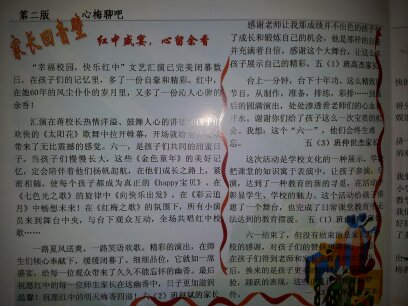 第二版 心梅聊吧
家长回音壁
红中盛宴，心留余香
“幸福校园，快乐红中”文艺汇演已完美闭幕数
日，在孩子们的记忆里，多了一份自豪和精彩。红中，
在她60年的风尘仆仆的岁月里，又多了一份沁人心脾的
余香！
汇演在蒋校长热情洋溢、鼓舞人心的讲
欢快的《太阳花》歌舞中拉开帷幕，开场就给
带来了无比震撼的感觉。六一，是孩子们共同的甜蜜日
子。当孩子们慢慢长大，这些《金色童年》的美好记
忆，定会陪伴着他们扬帆起航，在他们成长之路上，紧
密相随，使每个孩子都成为真正的《happy宝贝》，在
《七色光之歌》的旋律中《向快乐出发》，在《彩云追
月》中畅想未来！在《红梅之歌》的氛围下，所有小演
员来到舞台中央，与台下观众互动，全场共唱红中校
歌……
一路夏风送爽，一路笑语欢歌。精彩的演出，在师
生们倾心奉献下，缓缓闭幕了。细细品位，它就如一席
盛宴，给每一位观众带来了久久不能忘怀的余香。最后
祝愿红中的每一位师生家长在这幽香中，日子更加滋润
温馨！祝愿红中的明天梅香四溢！六（2）班赵斌的家长
感谢老师让我那成绩并不出色的孩子
了成长和锻炼自己的机会，他是那样的
并充满着自信。感谢这个大舞台，让这么
孩子展示自己的精彩。五（1）班高杰家长
台上一分钟，台下十年功。这么精
节目，从制作，准备，排练，彩排……到
后的圆满演出，处处渗透着老师们的心血
汗水。谢谢你们给了孩子这么一次宝贵的机
会。我想：这个“六一”，他们会终生难
忘。 五（3）班仲世杰家长
这次活动是学校文化的一种展示，学
把课堂的知识寓于表演中，让孩子参演，
演，达到了一种教育的新的寻觅，在活动
彰显学生、学校的魅力。这个活动给孩子
建了一个舞台，也完成了日常课堂教育
法达到的教育摆渡。 五（1）班
六一结束了，但没有结束的是家长
校的感谢，对孩子们的赞扬和期望
孩子们得到老师和
后，换来的是孩子更
验，踊跃的表现，